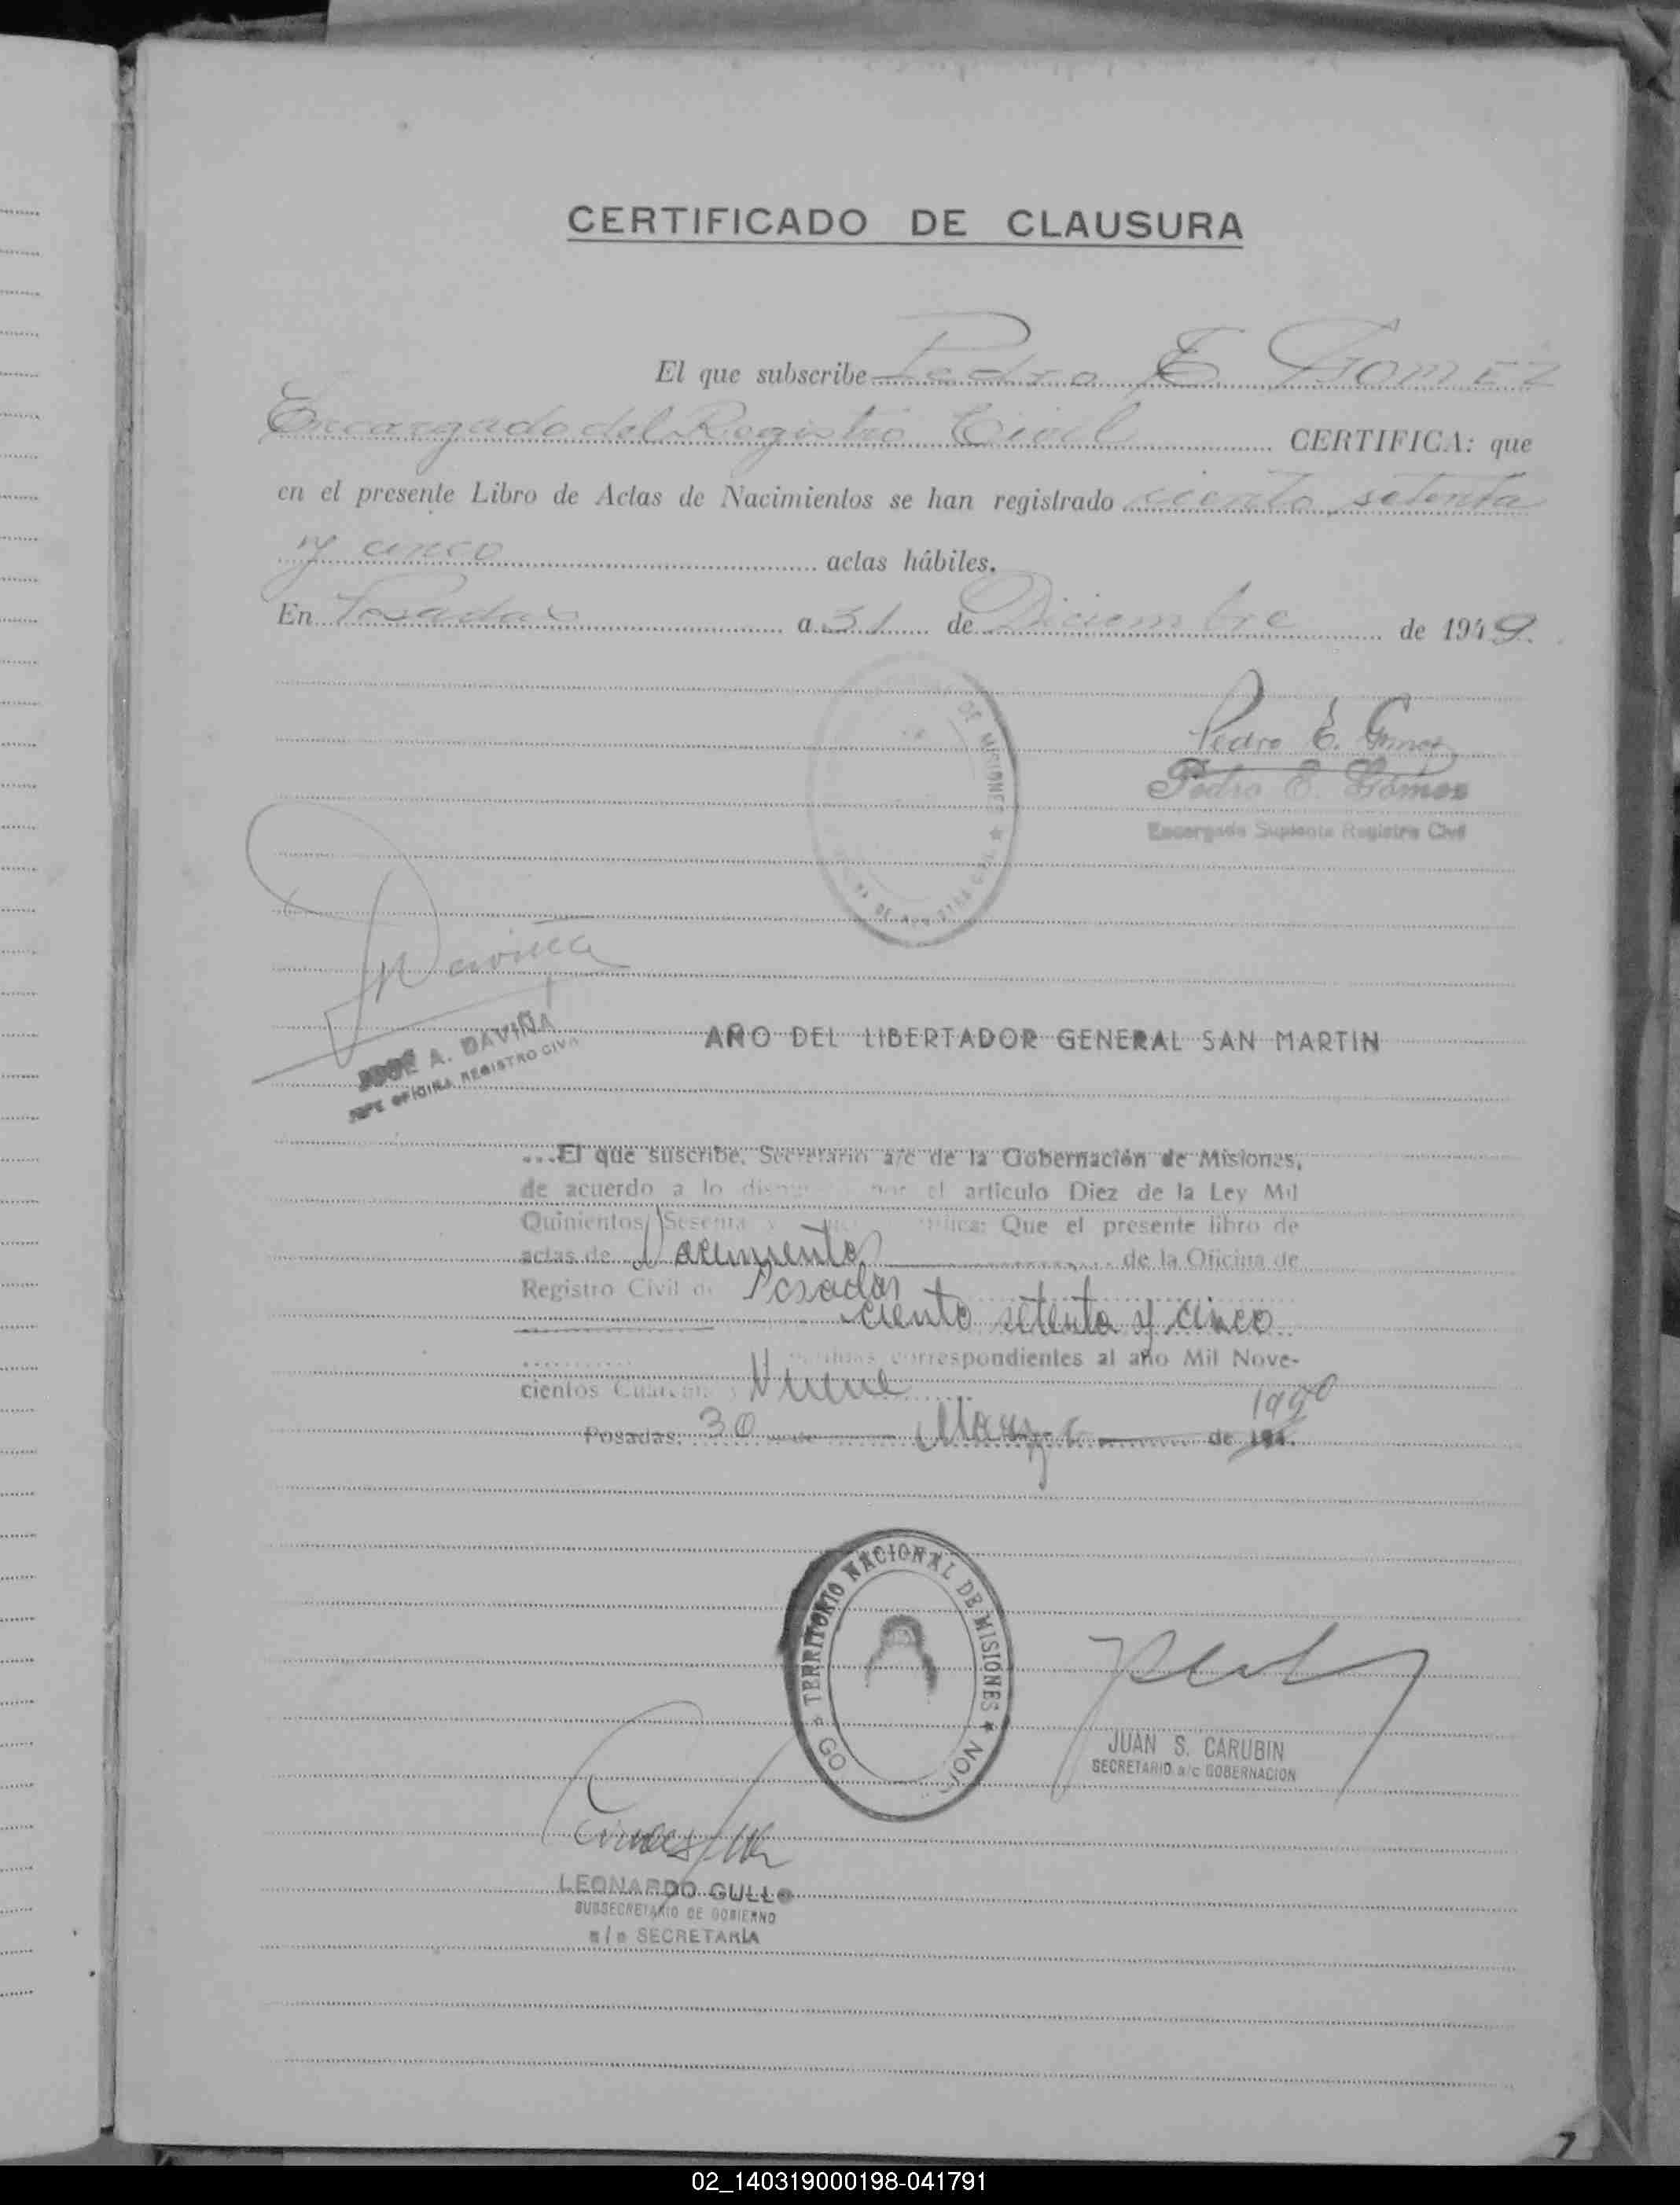 CERTIFICADO DE CLAUSURA
El que subscribe Pedro E Gomez
Encargado del Registro Civil CERTIFICA: que
en el presente Libro de Actas de Nacimientos se han registrado ciento setenta
y cinco actas hábiles.
En Posadas a 31 de Diciembre de 1949.
DE MISIONES
Pedro E. Gomez
Pedro E. Gómez
Encargado Suplente Registro Civil
Daviña
JOSÉ A. DAVIÑA
JEFE OFICINA REGISTRO CIVIL
AÑO DEL LIBERTADOR GENERAL SAN MARTIN
...El que suscribe, Secretario a/c de la Gobernación de Misiones,
de acuerdo a lo por el artículo Diez de la Ley Mil
Quinientos Sesenta y Que el presente libro de
actas de Nacimiento de la Oficina de
Registro Civil de Posadas
ciento setenta y cinco
correspondientes al año Mil Nove-
cientos Cuarenta y Nueve
Posadas, 30 de Marzo de 194. 1950
TERRITORIO NACIONAL DE MISIONES ★
GO NOI
JUAN S. CARUBIN
SECRETARIO a/c GOBERNACION
LEONARDO GULLO
SUBSECRETARIO DE GOBIERNO
a/c SECRETARIA
7
02_140319000198-041791